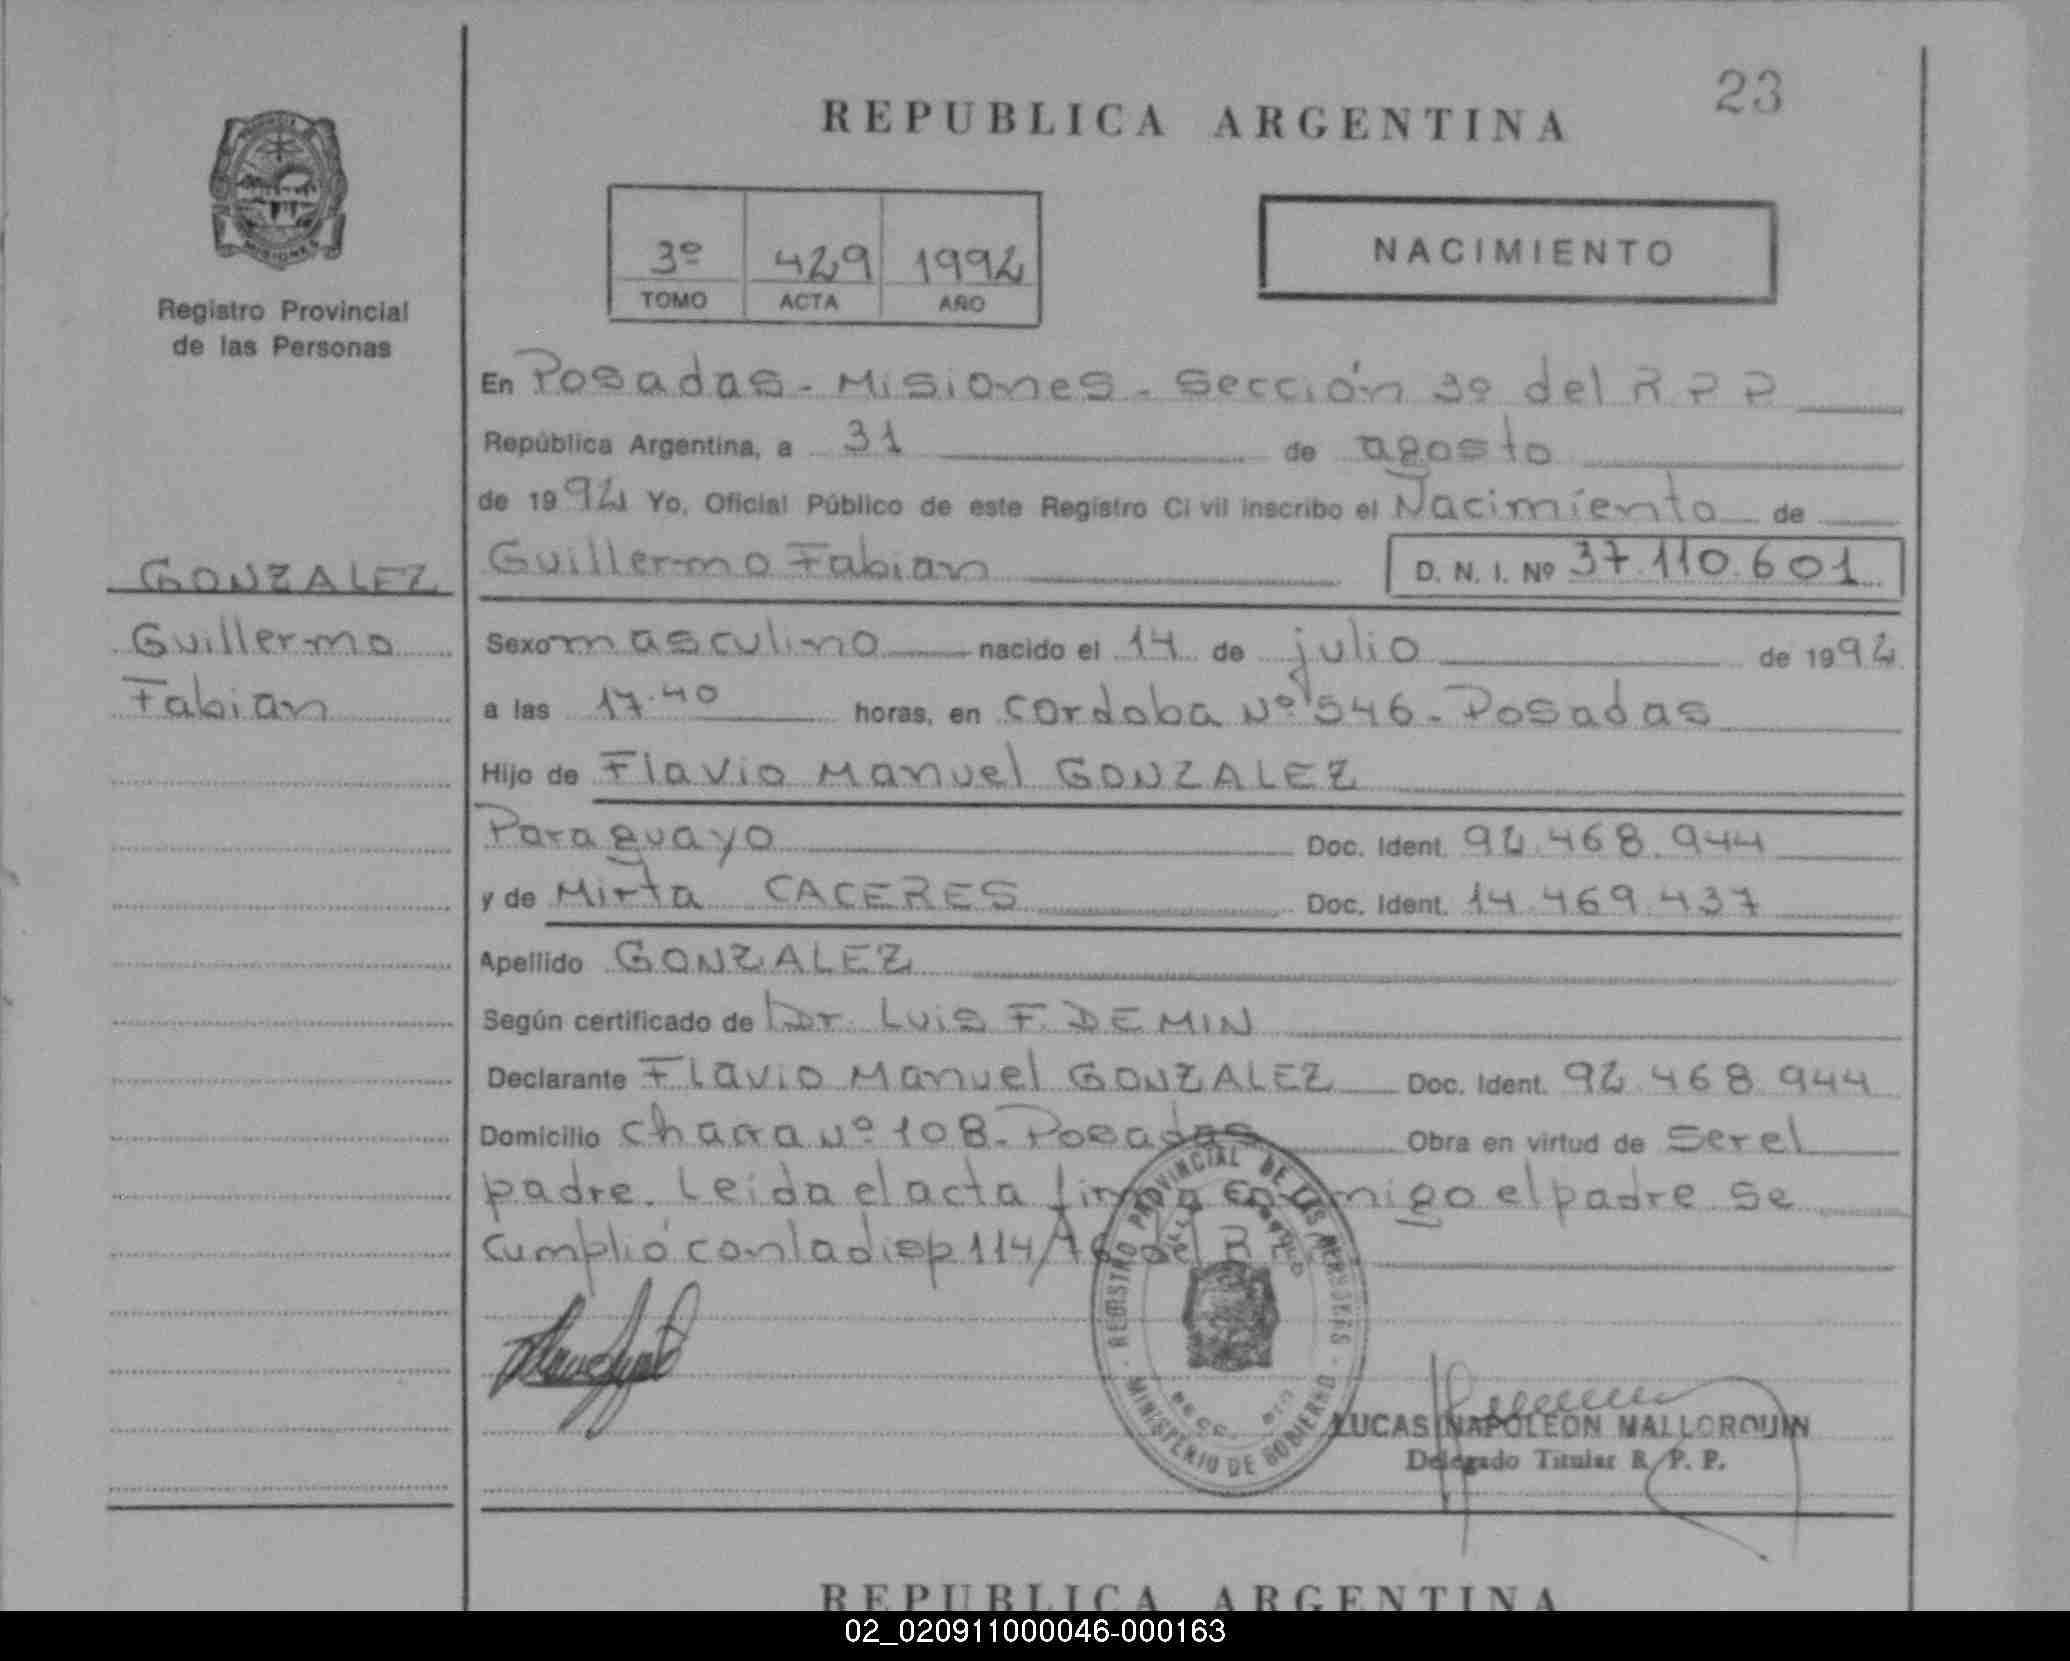 23
REPUBLICA ARGENTINA
3º 429 1992
TOMO ACTA AÑO
NACIMIENTO
Registro Provincial
de las Personas
En Posadas - Misiones - Sección 3º del R P P
República Argentina, a 31 de agosto
de 1992 Yo, Oficial Público de este Registro Civil inscribo el Nacimiento de
GONZALEZ
Guillermo Fabian D. N. I. Nº 37.110.601
Guillermo
Sexo masculino nacido el 14 de julio de 1992
Fabian
a las 17.40 horas, en cordoba Nº 546 - Posadas
Hijo de Flavio Manuel GONZALEZ
Paraguayo Doc. Ident. 92.468.944
y de Mirta CACERES Doc. Ident. 14.469.437
Apellido GONZALEZ
Según certificado de Dr. Luis F. DEMIN
Declarante Flavio Manuel GONZALEZ Doc. Ident. 92.468.944
Domicilio chacra Nº 108 - Posadas Obra en virtud de ser el
padre. Leida el acta firma conmigo el padre se
cumplió con la disp 114/ del R
REGISTRO PROVINCIAL DE LAS PERSONAS
MINISTERIO DE GOBIERNO
LUCAS NAPOLEON MALLORQUIN
Delegado Titular R. P. P.
REPUBLICA ARGENTINA
02_020911000046-000163